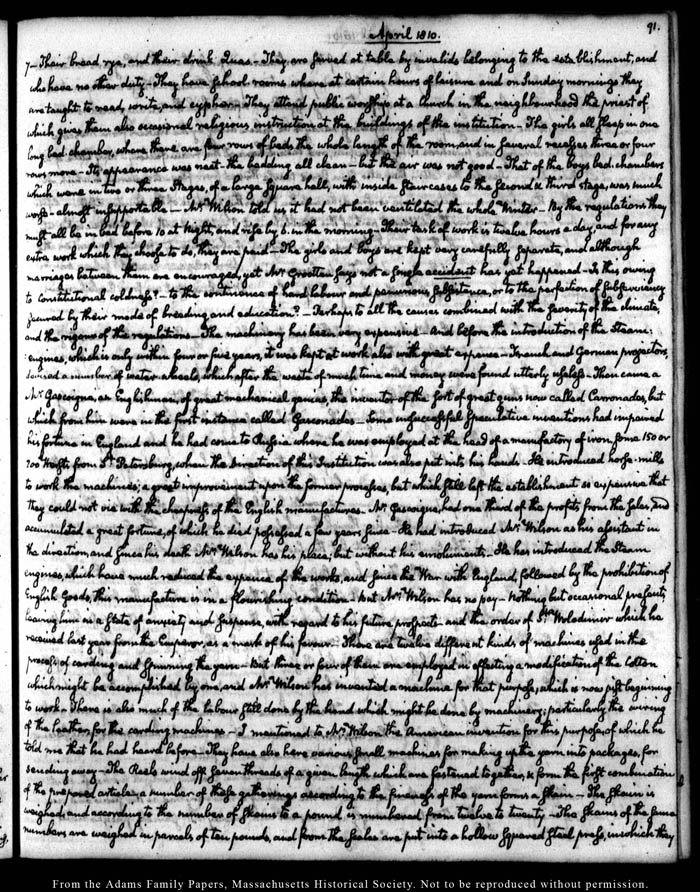 April 1810.
91.
7— Their bread rye, and their drink Quas— They are served at table by invalids belonging to the establishment, and
who have no other duty— They have school rooms where at certain hours of leisure and on Sunday mornings they
are taught to read, write, and cypher— They attend public worship at a Church in the neighbourhood the priest of
which gives them also occasional religious instruction at the buildings of the institution— The girls all sleep in one
long bed-chamber, where there are four rows of beds the whole length of the room, and in several recesses three or four
rows more— Its appearance was neat— the bedding all clean— but the air was not good— That of the boys bed-chambers
which were in two or three stages, of a large square hall, with inside stair cases to the second & third stage, was much
worse— almost insupportable— Mr: Wilson told us it had not been ventilated the whole Winter— By the regulations they
must all be in bed before 10 at Night, and rise by 5. in the morning— Their task of work is twelve hours a day, and for any
extra work which they choose to do, they are paid— The girls and boys are kept very carefully separate, and although
marriages between them are encouraged, yet Mr: says not a single accident has yet happened— Is this owing
to constitutional coldness?— to the continuance of hard labour and penurious subsistance, or to the perfection of subserviency
secured by their mode of breeding and education?— Perhaps to all the causes combined with the severity of the climate,
and the rigour of the regulations— The machinery has been very expensive— And before the introduction of the Steam-
engines, which is only within four or five years, it was kept at work also with great expense— French and German projectors,
devised a number of water-wheels, which after the waste of much time and money were found utterly useless— Then came a
Mr: Gascoigne, an Englishman, of great mechanical genius the inventor of the sort of great guns now called Carronades, but
which from him were in the first instance called Gasconades— Some unsuccessful speculative inventions had impaired
his fortune in England and he had come to Russia where he was employed at the head of a manufactory of iron, some 150 or
200 Wersts from St. Petersburg, when the direction of this Institution was also put into his hands— He introduced horse-mills
to work the machines; a great improvement upon the former process, but which still left the establishment so expensive that
they could not vie with the cheapness of the English manufactures— Mr: Gascoigne, had one third of the profits from the sales, and
accumulated a great fortune, of which he died possessed a few years since— He had introduced Mr: Wilson as his assistant in
the direction, and since his death Mr: Wilson has his place; but without his emoluments— He has introduced the Steam
engines, which have much reduced the expence of the works, and since the War with England, followed by the prohibition of
English Goods, this manufacture is in a flourishing condition— but Mr: Wilson has no pay— Nothing but occasional presents,
leaving him in a State of anxiety and suspense, with regard to his future prospects— and the order of St. Wolodimir which he
received last year from the Emperor, as a mark of his favour— There are twelve different kinds of machines used in the
process of carding and spinning the yarn— But three or four of them are employed in effecting a modification of the Cotton
which might be accomplished by one, and Mr: Wilson has invented a machine for that purpose, which is now just beginning
to work— There is also much of the labour still done by the hand which might be done by machinery; particularly the wiring
of the leather, for the carding machines— I mentioned to Mr: Wilson the American invention for this purpose, of which he
told me that he had heard before— They have also here various small machines for making up the yarn into packages, for
sending away— The Reels wind off seven threads of a given length which are fastened together, & form the first combination
of the prepared article; a number of these gatherings according to the fineness of the yarn forms a skain— The skain is
weighed, and according to the number of skains to a pound is numbered from twelve to twenty— The skains of the same
numbers are weighed in parcels of ten pounds, and from the scales are put into a hollow squared steel press, in which they
From the Adams Family Papers, Massachusetts Historical Society. Not to be reproduced without permission.